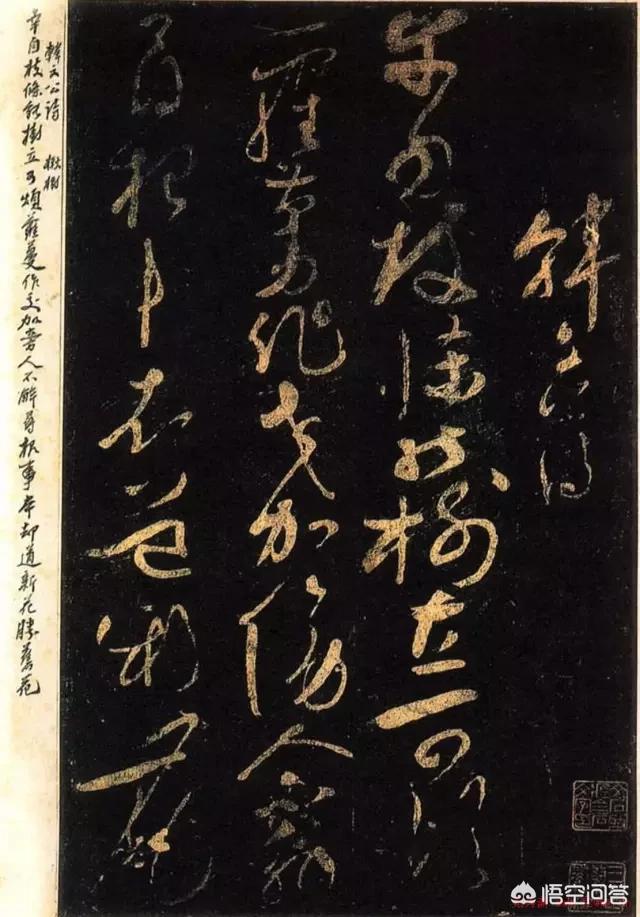 韓文公詩
幸自枝條能樹立可煩
蘿蔓作交加傍人不解
尋根本却道新花
韓文公詩 楸樹
幸自枝條能樹立可煩蘿蔓作交加旁人不解尋根事本却道新花勝舊花
悟空问答